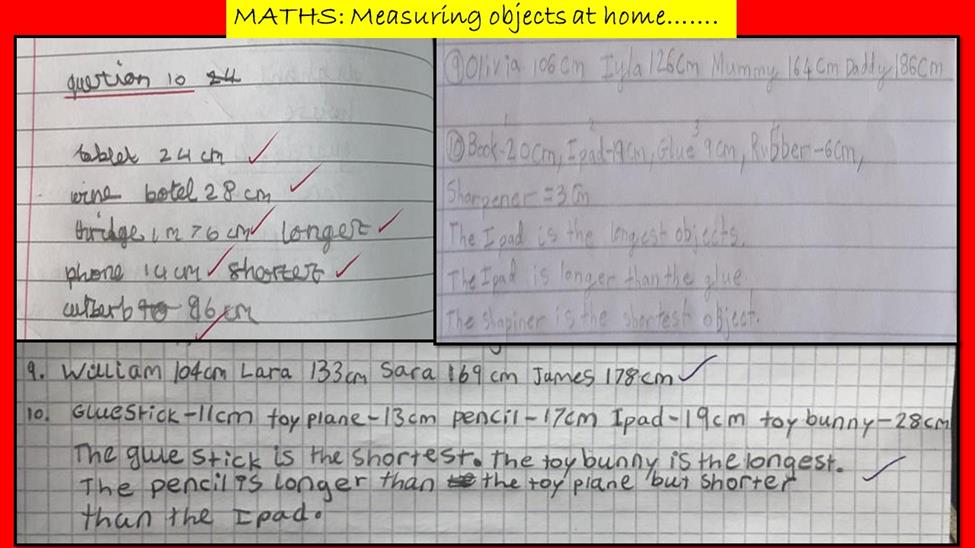 MATHS: Measuring objects at home.......
question 10
tablet 24cm
wine botel 28cm
thridge 1m 76cm longest
phone 14cm shortest
86cm
9 Olivia 106cm Iyla 126cm Mummy 164cm Daddy 186cm
1 2 3 4
10 Book-20cm, Ipad-19cm, Glue 9cm, Rubber-6cm,
Sharpener=3cm
The Ipad is the longest objects.
The Ipad is longer than the glue.
The shapiner is the shortest object.
9. William 104cm Lara 133cm Sara 169cm James 178cm
10. Gluestick-11cm toy plane-13cm pencil-17cm Ipad-19cm toy bunny-28cm
The glue stick is the shortest. The toy bunny is the longest.
The pencil is longer than the toy plane but shorter
than the Ipad.